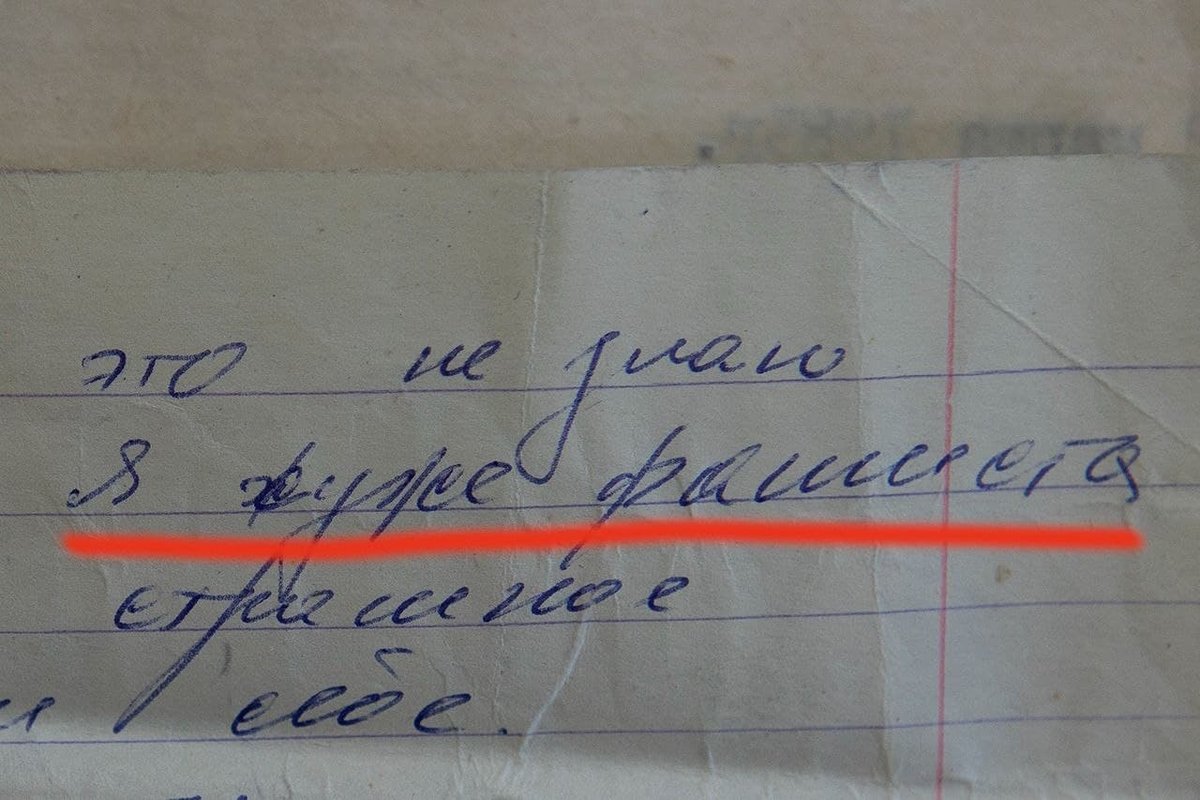 это не знаю
я хуже фашиста
страшное
и себе.